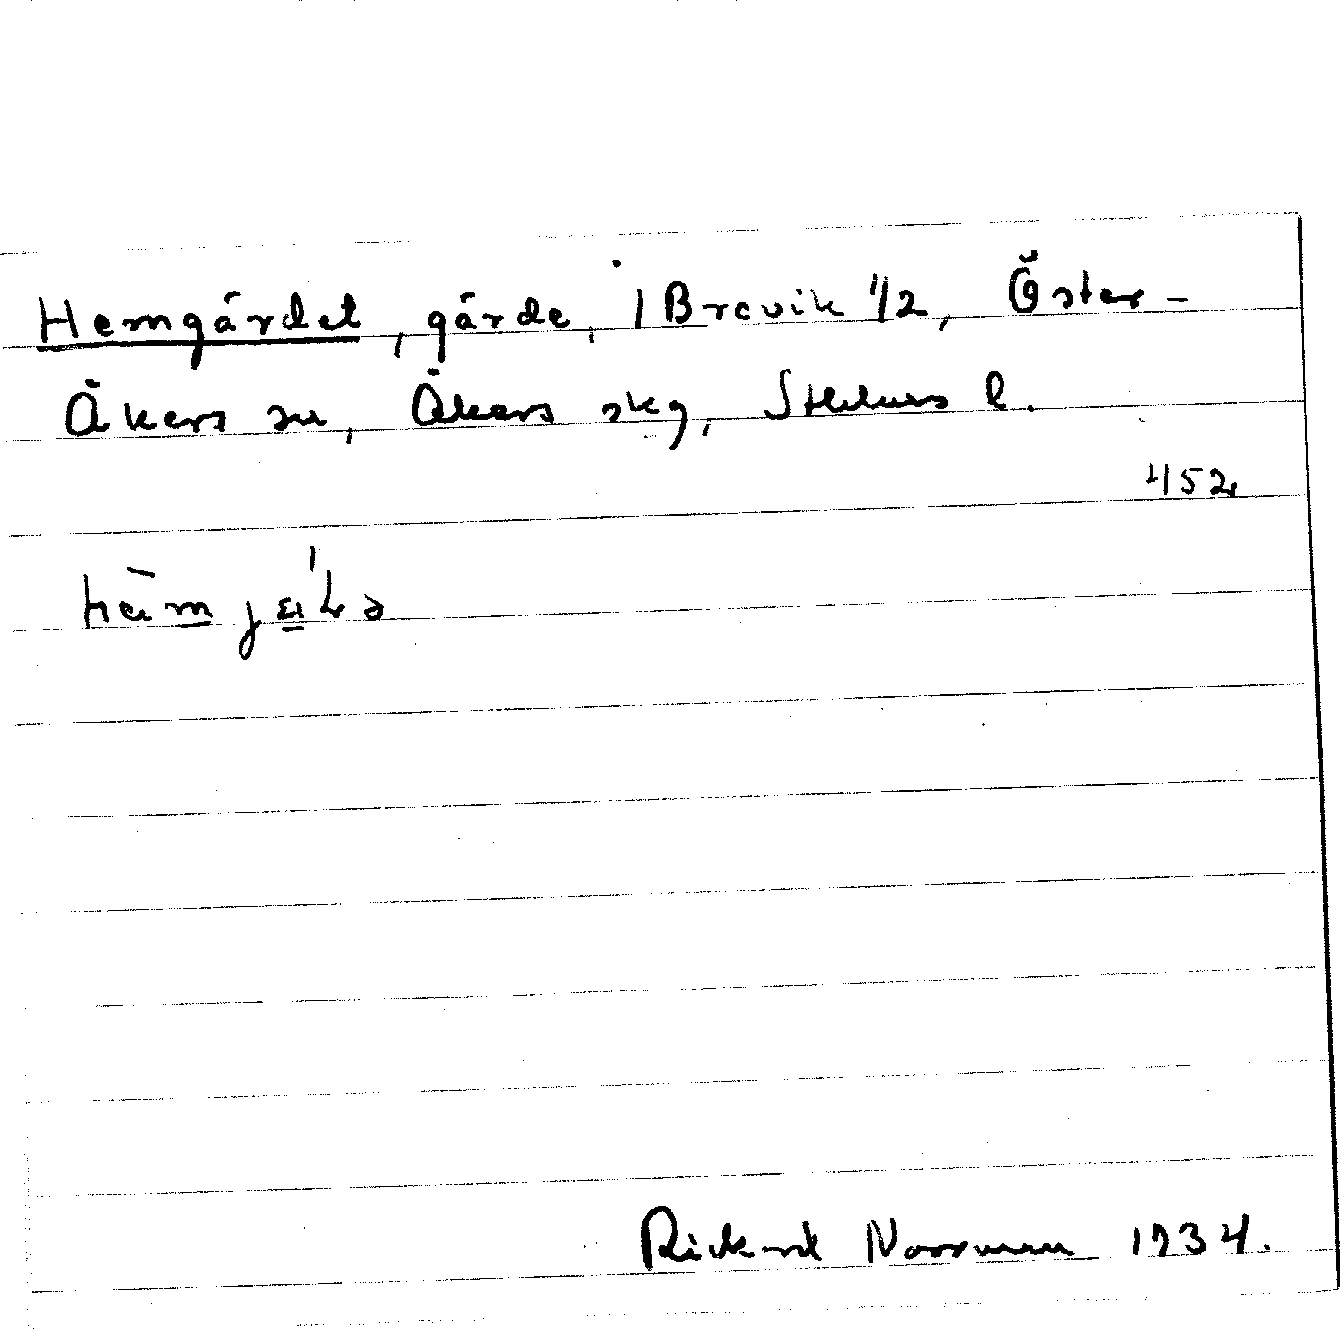 Hemgärdet, gärde, i Brevik 1/2, Öster-
Åkers sn, Åkers skg, Sthlms l.
452
Rickard Norrman 1934.